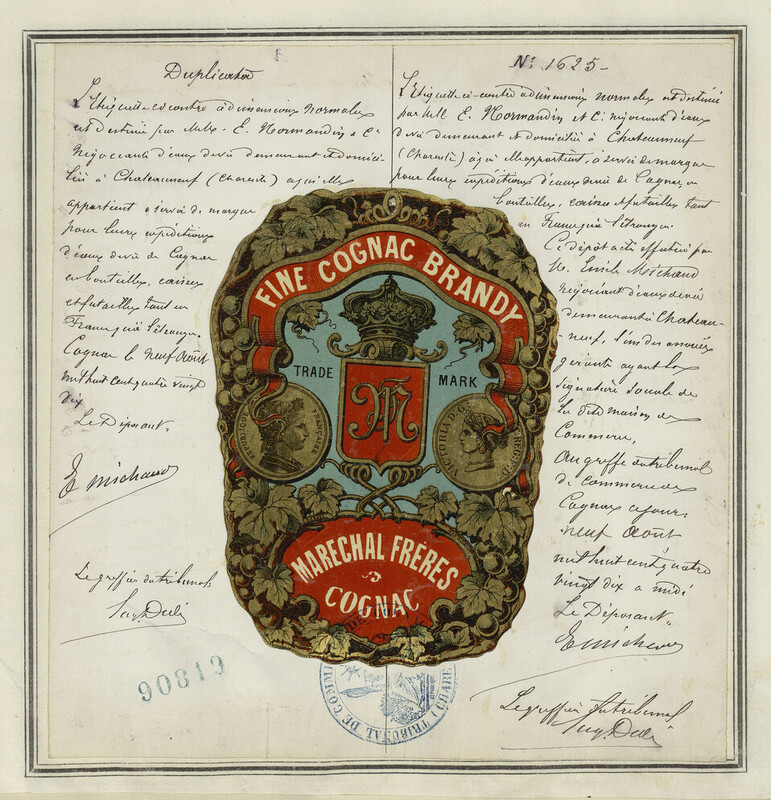 Duplicata
L'Etiquette ci contre à dimensions normales
est destinée par MM. E. Normandin & Cie
Négociants d'eaux de vie demeurant et domici-
liés à Chateauneuf (Charente) à qui elle
appartient à servir de marque
pour leurs expéditions
d'eaux de vie de Cognac
en bouteilles, caisses
et futailles tant en
France qu'à l'étranger
Cognac le neuf Août
mil huit cent quatre vingt
dix
Le Déposant.
E Michaud
Le greffier du tribunal
90819
N° 1625-
L'Etiquette ci-contre à dimensions normales est destinée
par MM. E. Normandin et Cie négociants d'eaux
de vie demeurant et domiciliés à Chateauneuf
(Charente) à qui elle appartient, à servir de marque
pour leurs expéditions d'eaux de vie de Cognac en
bouteilles, caisses et futailles tant
en France qu'à l'étranger.
Ce dépôt a été effectué par
M. Emile Michaud
négociant d'eaux de vie
demeurant à Chateau-
neuf, l'un des associés
gérants ayant la
signature sociale de
la dite maison de
Commerce,
au greffe du tribunal
de Commerce de
Cognac ce jour
neuf Août
mil huit cent quatre
vingt dix à midi
Le Déposant.
E Michaud
Le greffier du tribunal
FINE COGNAC BRANDY
TRADE MARK
REPUBLIQUE FRANÇAISE
VICTORIA D.G. REG.
MARECHAL FRÈRES
COGNAC
TRIBUNAL DE COMM